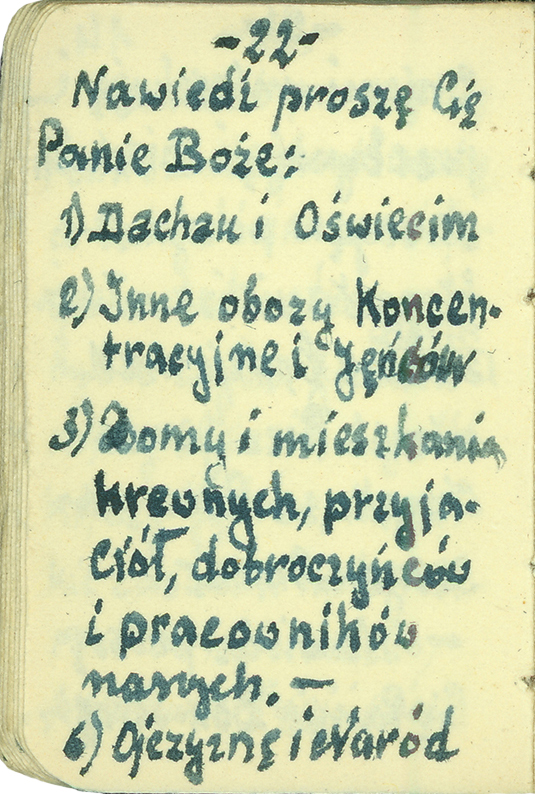 -22-
Nawiedź proszę Cię
Panie Boże:
1) Dachau i Oświecim
2) Inne obozy Koncen-
tracyjne i Jęńców
3) Domy i mieszkania
krewnych, przyja-
ciół, dobroczyńców
i pracowników
naszych. —
4) Ojczyznę i Naród